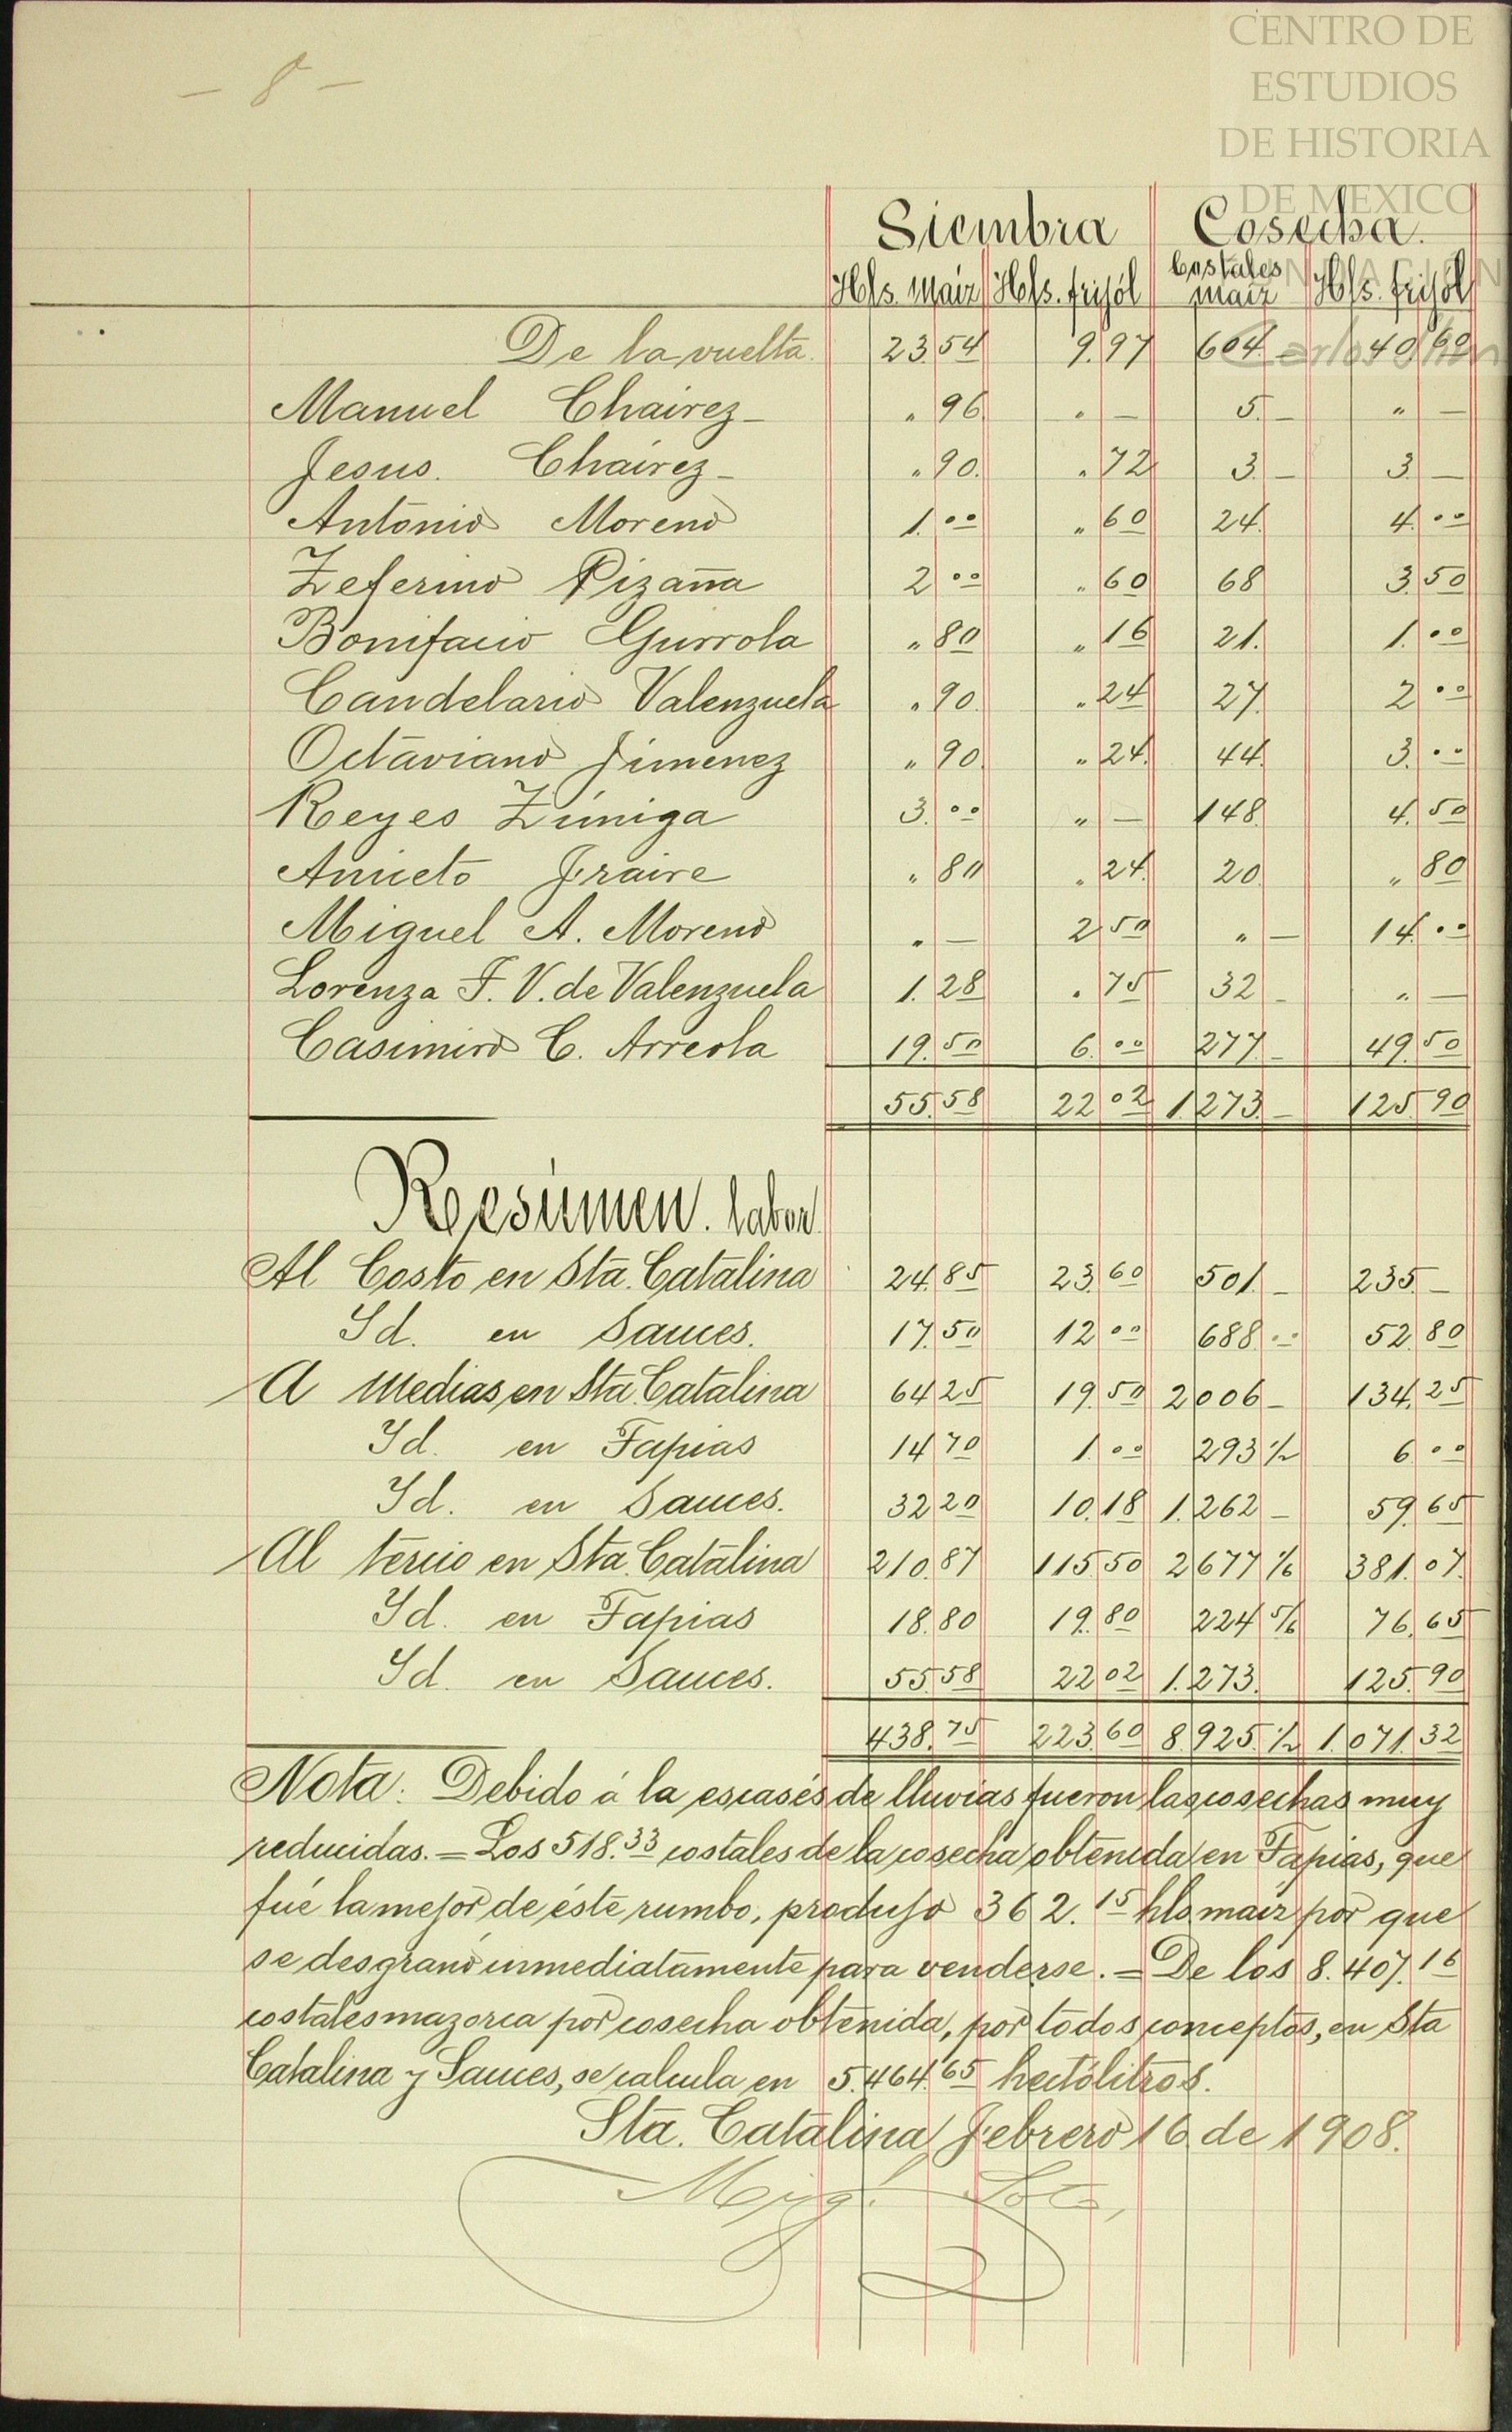 CENTRO DE
ESTUDIOS
DE HISTORIA
DE MEXICO
- 8 -
Siembra Cosecha.
Hls. Maiz Hls. frijól Costales maiz Hls. frijól
De la vuelta. 23.54 9.97 604. - 40.60
Manuel Chairez - " 96 " - 5. - " -
Jesus. Chairez - " 90. " 72 3. - 3. -
Antonio Moreno 1.00 " 60 24. 4.00
Zeferino Pizaña 2 00 " 60 68 3.50
Bonifacio Gurrola " 80 " 16 21. 1.00
Candelario Valenzuela " 90. " 24 27. 2 00
Octaviano Jimenez " 90. " 24. 44. 3.00
Reyes Zúniga 3.00 " - 148. 4.50
Aniceto Fraire " 80 " 24. 20. " 80
Miguel A. Moreno " - 2.50 " - 14.00
Lorenza F. V. de Valenzuela 1.28 " 75 32 - " -
Casimiro C. Arreola 19.50 6.00 277. - 49.50
55.58 22 02 1.273. - 125.90
Resúmen. labor.
Al Costo en Sta. Catalina 24.85 23.60 501. - 235. -
Id. en Sauces. 17.50 12 00 688 00 52.80
A medias en Sta. Catalina 64 25 19.50 2006 - 134.25
Id. en Tapias 14 70 1.00 293 ½ 6 00
Id. en Sauces. 32 20 10.18 1.262 - 59.65
Al tercio en Sta. Catalina 210.87 115.50 2677 1/6 381.07.
Id. en Tapias 18.80 19.80 224 5/6 76.65
Id. en Sauces. 55.58 22 02 1.273. 125.90
438.75 223.60 8.925. ½ 1.071.32
Nota: Debido á la escasés de lluvias fueron las cosechas muy
reducidas. = Los 518.33 costales de la cosecha obtenida en Tapias, que
fué la mejor de éste rumbo, produjo 362.15 hls maiz por que
se desgranó inmediatamente para venderse. = De los 8.407.16
costales mazorca por cosecha obtenida, por todos conceptos, en Sta
Catalina y Sauces, se calcula en 5.464.65 hectólitros.
Sta. Catalina, Febrero 16 de 1908.
Mig.